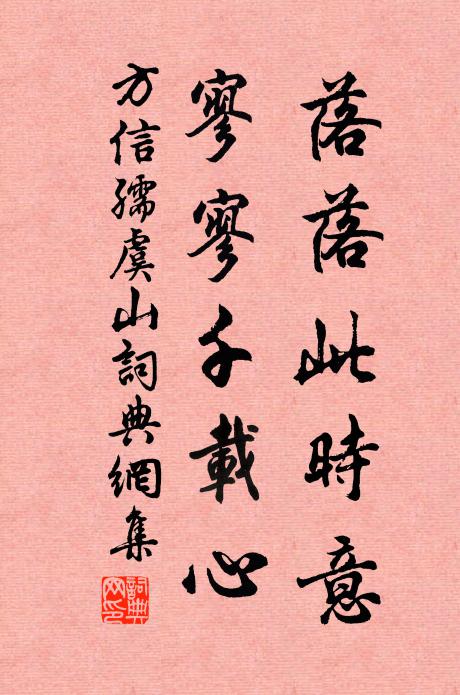 落落此時意
寥寥千載心
方信孺虞山詞典網集
詞典網印